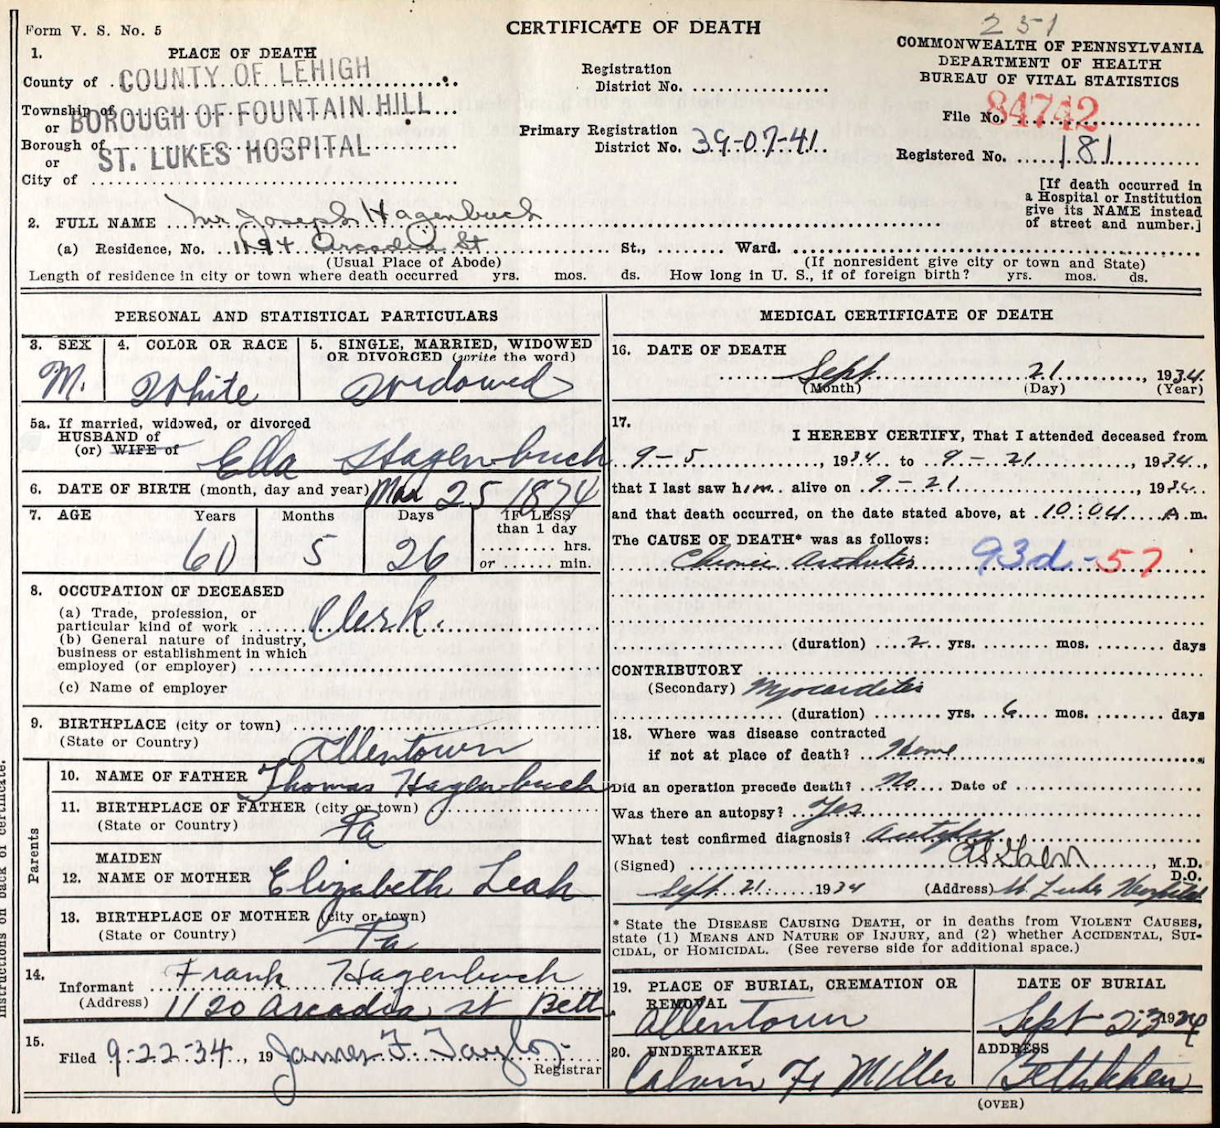 251
Form V. S. No. 5
CERTIFICATE OF DEATH
COMMONWEALTH OF PENNSYLVANIA
DEPARTMENT OF HEALTH
BUREAU OF VITAL STATISTICS
1. PLACE OF DEATH
County of COUNTY OF LEHIGH
Township of
or BOROUGH OF FOUNTAIN HILL
Borough of
or ST. LUKES HOSPITAL
City of
Registration
District No.
Primary Registration
District No. 39-07-41
File No. 84742
Registered No. 181
[If death occurred in
a Hospital or Institution
give its NAME instead
of street and number.]
2. FULL NAME Mr Joseph Hagenbuch
(a) Residence, No. 1194 Arcadia St St., Ward.
(Usual Place of Abode) (If nonresident give city or town and State)
Length of residence in city or town where death occurred yrs. mos. ds. How long in U. S., if of foreign birth? yrs. mos. ds.
PERSONAL AND STATISTICAL PARTICULARS
3. SEX 4. COLOR OR RACE 5. SINGLE, MARRIED, WIDOWED
OR DIVORCED (write the word)
M. White Widowed
5a. If married, widowed, or divorced
HUSBAND of
(or) WIFE of Ella Hagenbuch
6. DATE OF BIRTH (month, day and year) 25 1874
7. AGE Years Months Days IF LESS
than 1 day
hrs.
or ...... min.
60 5 26
8. OCCUPATION OF DECEASED
(a) Trade, profession, or
particular kind of work Clerk.
(b) General nature of industry,
business or establishment in which
employed (or employer)
(c) Name of employer
9. BIRTHPLACE (city or town)
(State or Country) Allentown
Parents
10. NAME OF FATHER Thomas Hagenbuch
11. BIRTHPLACE OF FATHER (city or town)
(State or Country) Pa
12. MAIDEN
NAME OF MOTHER Elizabeth Leah
13. BIRTHPLACE OF MOTHER (city or town)
(State or Country) Pa
14. Informant Frank Hagenbuch
(Address) 1120 Arcadia st Beth
15. Filed 9-22-34, 19 James F. Taylor
Registrar
MEDICAL CERTIFICATE OF DEATH
16. DATE OF DEATH
Sept 21, 1934
(Month) (Day) (Year)
17. I HEREBY CERTIFY, That I attended deceased from
9-5, 1934 to 9-21, 1934,
that I last saw him alive on 9-21, 1934
and that death occurred, on the date stated above, at 10:04 A m.
The CAUSE OF DEATH* was as follows:
Chronic Arthritis 93d-57
(duration) 2 yrs. mos. days
CONTRIBUTORY
(Secondary) Myocarditis
(duration) yrs. 6 mos. days
18. Where was disease contracted
if not at place of death? Home
Did an operation precede death? No Date of
Was there an autopsy? Yes
What test confirmed diagnosis? autopsy
(Signed) M.D.
D.O.
Sept 21 1934 (Address) St Lukes Hospital
* State the DISEASE CAUSING DEATH, or in deaths from VIOLENT CAUSES,
state (1) MEANS AND NATURE OF INJURY, and (2) whether ACCIDENTAL, SUI-
CIDAL, or HOMICIDAL. (See reverse side for additional space.)
19. PLACE OF BURIAL, CREMATION OR
REMOVAL DATE OF BURIAL
Allentown Sept 23 1934
20. UNDERTAKER ADDRESS
Calvin F. Miller Bethlehem
(OVER)
instructions on back of certificate.